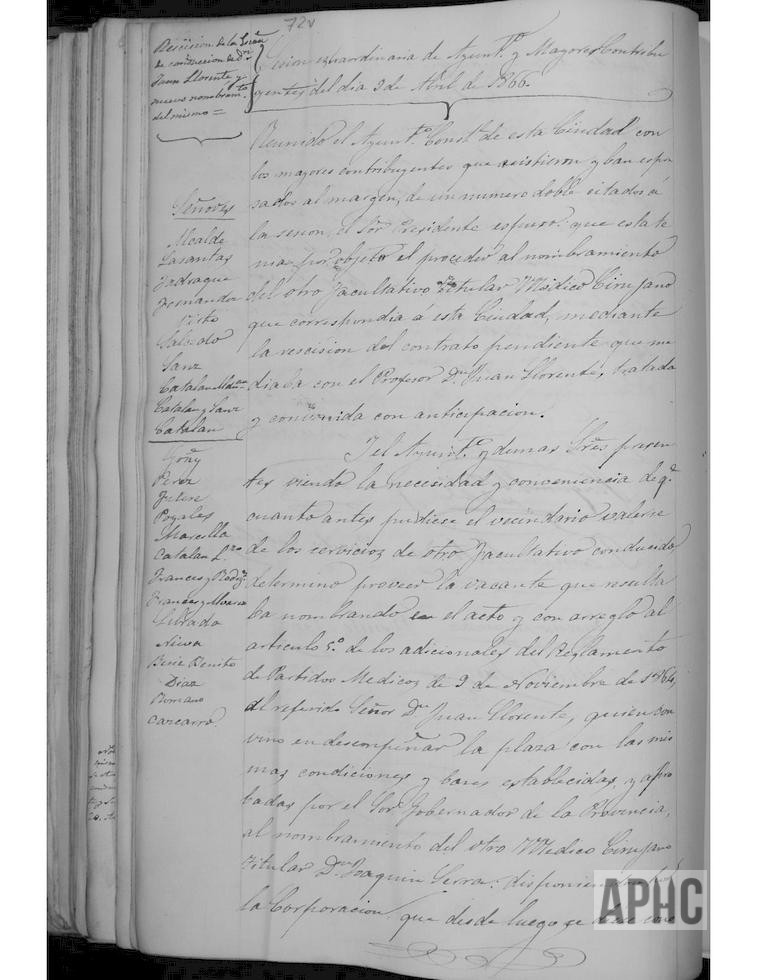 72v
Rescision de la Escra
de conduccion de Dn
Juan Llorente y
nuevo nombramto
del mismo =
Sesion extraordinaria de Ayuntto y Mayores Contribu
yentes del dia 3 de Abril de 1866.
Señores
Alcalde
Lasantas
Jadraque
Fernandez
Pirto
Salcedo
Sanz
Catalan
Catalan y Sanz
Catalan
Goñy
Perez
Pozales
Marcilla
Catalan
Frances y Rodrigz
Frances y Alvarez
Librada
Nueva
Benito
Diaz
Romano
Carcarro.
Reunido el Ayuntto Constl de esta Ciudad con
los mayores contribuyentes que asistieron y ban espre
sados al margen, de un numero doble citados á
la sesion, el Sor Presidente espuso: que esta te
nia por objeto el proceder al nombramiento
del otro Facultativo titular Médico Cirujano
que correspondia á esta Ciudad, mediante
la rescision del contrato pendiente que me
diaba con el Profesor Dn Juan Llorente, tratada
y convenida con anticipacion.
Y el Ayuntto y demas Sres presen
tes viendo la necesidad y conveniencia de qe
cuanto antes pudiese el vecindario valerse
de los servicios de otro Facultativo conducido
determinó proveer la vacante que resulta
ba nombrando en el acto y con arreglo al
articulo de los adicionales del Reglamento
de Partidos Medicos de 9 de Noviembre de 1864,
al referido Señor Dn Juan Llorente, quien con
vino en desempeñar la plaza con las mis
mas condiciones y bases establecidas, y apro
badas por el Sor Gobernador de la Provincia,
al nombramiento del otro Médico Cirujano
Titular Dn Joaquin Serra: disponiendo
la Corporacion, que desde luego se
APHC